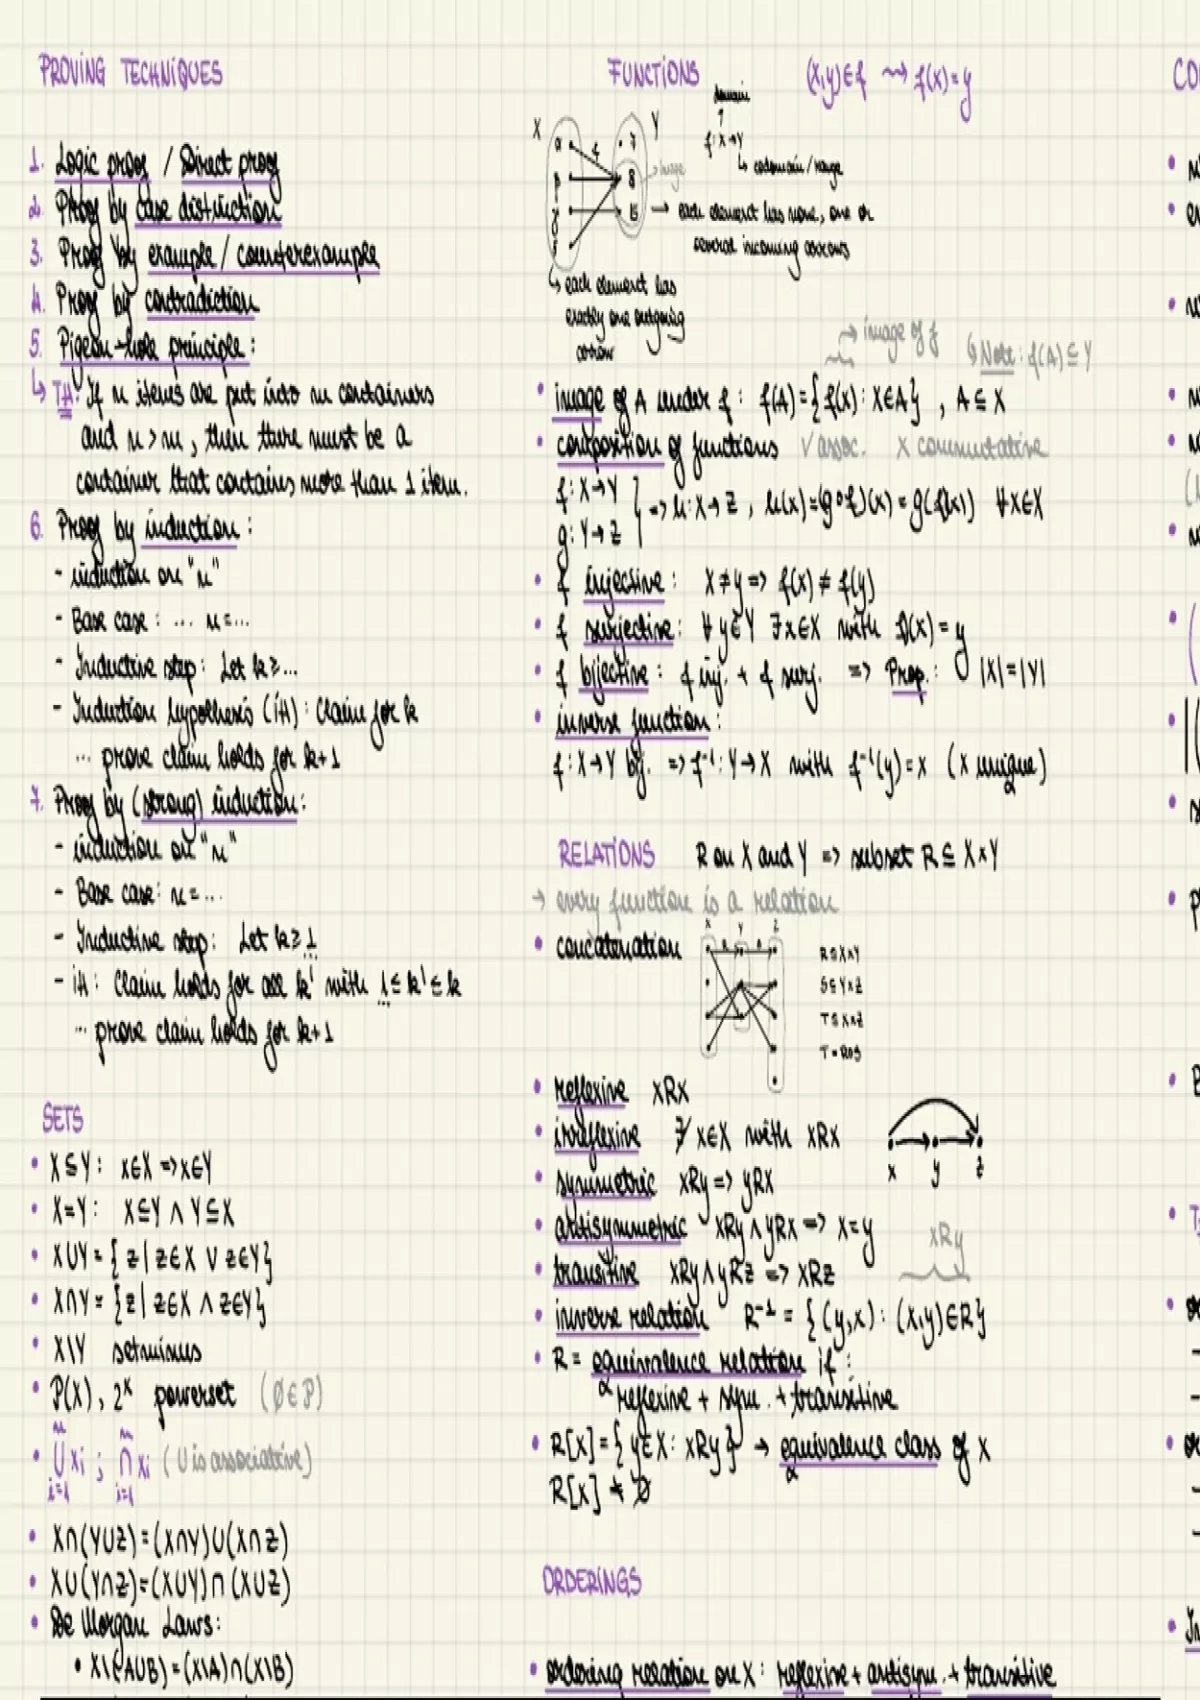 PROVING TECHNIQUES
1. Logic proof / Direct proof
2. Proof by case distinction
3. Proof by example / counterexample
4. Proof by contradiction
5. Pigeon-hole principle:
↳ TH: If n items are put into m containers
and n > m, then there must be a
container that contains more than 1 item.
6. Proof by induction:
- induction on "n"
- Base case: ... n = ...
- Inductive step: Let k ≥ ...
- Induction hypothesis (iH): Claim for k
... prove claim holds for k+1
7. Proof by (strong) induction:
- induction on "n"
- Base case: n = ...
- Inductive step: Let k ≥ 1
- iH: Claim holds for all k' with 1 ≤ k' ≤ k
... prove claim holds for k+1
SETS
• X ⊆ Y: x∈X => x∈Y
• X = Y: X ⊆ Y ∧ Y ⊆ X
• X∪Y = { z | z∈X ∨ z∈Y}
• X∩Y = { z | z∈X ∧ z∈Y}
• X\Y setminus
• P(X), 2^X powerset (∅∈P)
• n ⋃ i=1 Xi ; n ⋂ i=1 Xi (∪ is associative)
• X∩(Y∪Z) = (X∩Y)∪(X∩Z)
• X∪(Y∩Z) = (X∪Y)∩(X∪Z)
• De Morgan Laws:
• X\(A∪B) = (X\A)∩(X\B)
FUNCTIONS (x,y)∈f ⇝ f(x)=y
domain
↑
f: X→Y
↳ codomain / range
X Y
f
7
8
→ image
15 → each element has none, one or
several incoming arrows
↳ each element has
exactly one outgoing
arrow
→ image of f
↳ Note: f(A) ⊆ Y
• image of A under f: f(A) = { f(x): x∈A} , A ⊆ X
• composition of functions ✓ assoc. X commutative
f: X→Y
g: Y→Z } => h: X→Z , h(x) = (g∘f)(x) = g(f(x)) ∀x∈X
• f injective: x ≠ y => f(x) ≠ f(y)
• f surjective: ∀ y∈Y ∃ x∈X with f(x) = y
• f bijective: f inj. + f surj. => Prop.: |X| = |Y|
• inverse function:
f: X→Y bij. => f⁻¹: Y→X with f⁻¹(y) = x (x unique)
RELATIONS R on X and Y => subset R ⊆ X×Y
→ every function is a relation
• concatenation
X Y Z
R S
R ⊆ X×Y
S ⊆ Y×Z
T ⊆ X×Z
T = R∘S
• reflexive xRx
• irreflexive ∄ x∈X with xRx
• symmetric xRy => yRx
• antisymmetric xRy ∧ yRx => x = y
• transitive xRy ∧ yRz => xRz
x y z
xRy
• inverse relation R⁻¹ = { (y,x): (x,y)∈R}
• R = equivalence relation if:
reflexive + sym. + transitive
• R[x] = { y∈X: xRy } → equivalence class of x
R[x] ≠ ∅
ORDERINGS
• ordering relation on X: reflexive + antisym. + transitive
CO